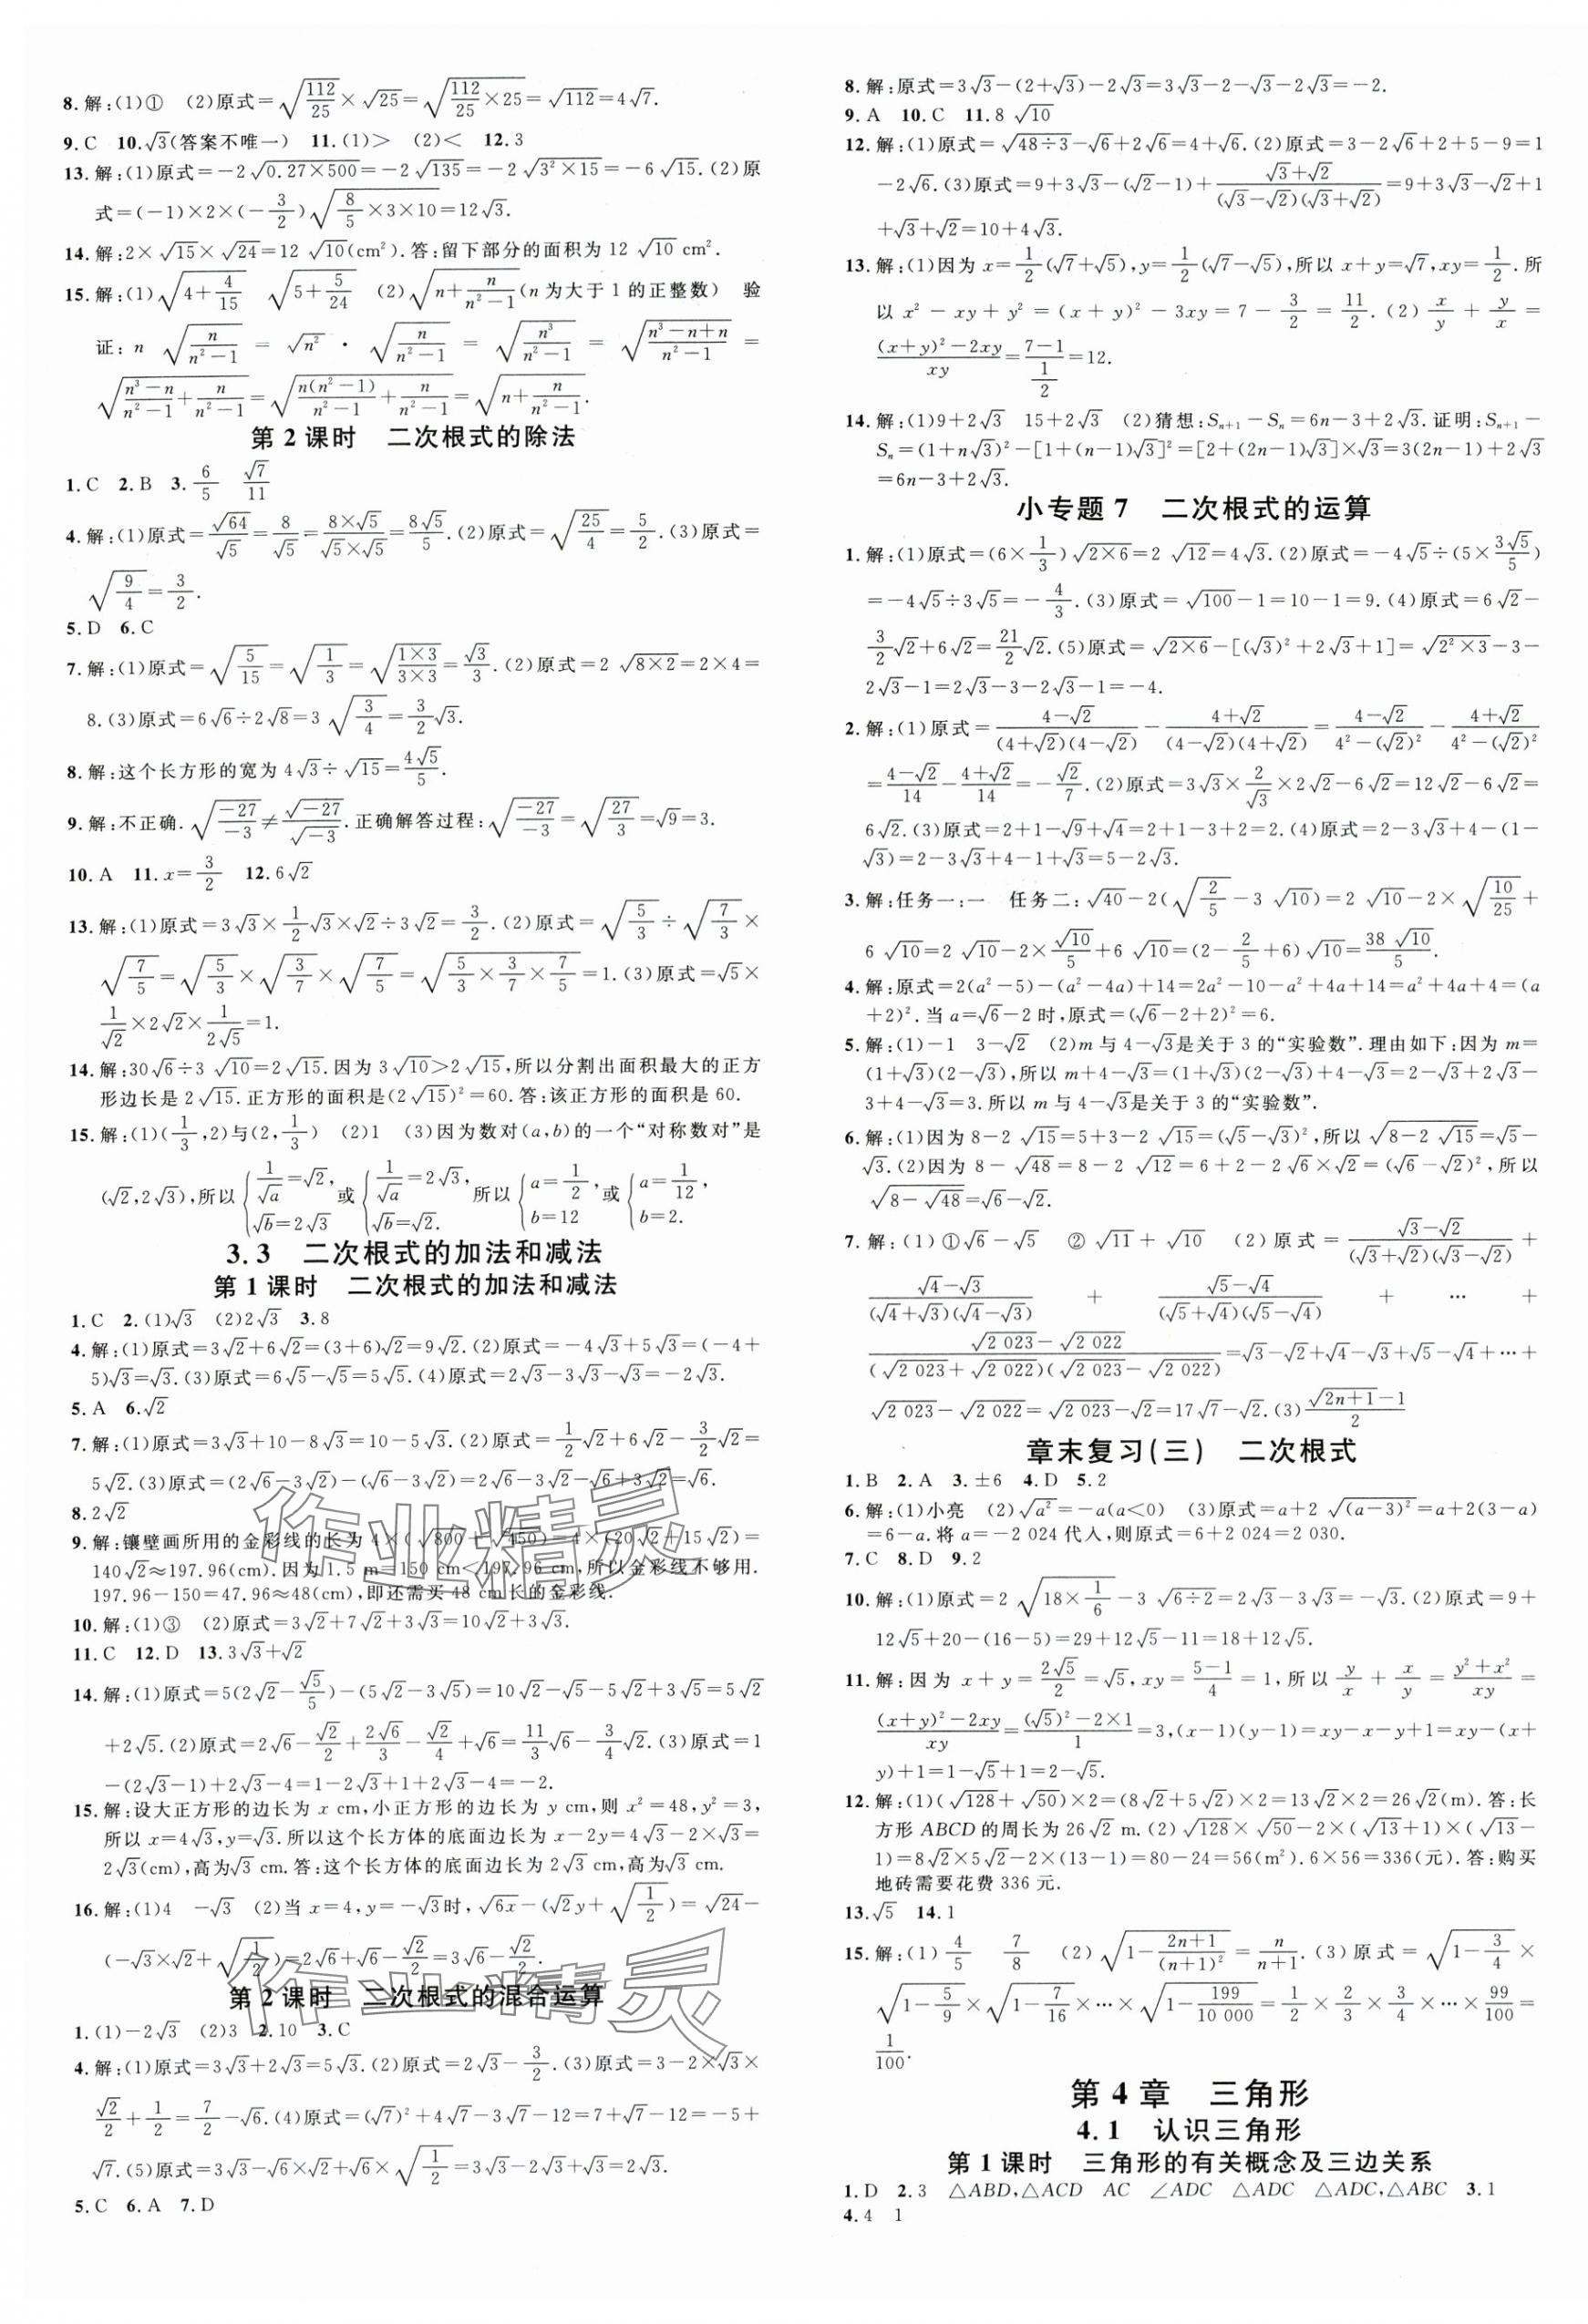 8.解:(1)① (2)原式=√(112/25)×√25=√(112/25×25)=√112=4√7.
9.C 10.√3(答案不唯一) 11.(1)> (2)< 12.3
13.解:(1)原式=-2√(0.27×500)=-2√135=-2√(3²×15)=-6√15.(2)原
式=(-1)×2×(-3/2)√(8/5×3×10)=12√3.
14.解:2×√15×√24=12√10(cm²).答:留下部分的面积为12√10 cm².
15.解:(1)√(4+4/15) √(5+5/24) (2)√(n+n/(n²-1))(n为大于1的正整数) 验
证:n√(n/(n²-1))=√n²·√(n/(n²-1))=√(n³/(n²-1))=√((n³-n+n)/(n²-1))=
√((n³-n)/(n²-1)+n/(n²-1))=√(n(n²-1)/(n²-1)+n/(n²-1))=√(n+n/(n²-1)).
第2课时 二次根式的除法
1.C 2.B 3.6/5 √7/11
4.解:(1)原式=√64/√5=8/√5=(8×√5)/(√5×√5)=8√5/5.(2)原式=√(25/4)=5/2.(3)原式=
√(9/4)=3/2.
5.D 6.C
7.解:(1)原式=√(5/15)=√(1/3)=√((1×3)/(3×3))=√3/3.(2)原式=2√(8×2)=2×4=
8.(3)原式=6√6÷2√8=3√(3/4)=3/2√3.
8.解:这个长方形的宽为4√3÷√15=4√5/5.
9.解:不正确.√(-27/-3)≠√-27/√-3.正确解答过程:√(-27/-3)=√(27/3)=√9=3.
10.A 11.x=3/2 12.6√2
13.解:(1)原式=3√3×1/2√3×√2÷3√2=3/2.(2)原式=√(5/3)÷√(7/3)×
√(7/5)=√(5/3)×√(3/7)×√(7/5)=√(5/3×3/7×7/5)=1.(3)原式=√5×
1/√2×2√2×1/(2√5)=1.
14.解:30√6÷3√10=2√15.因为3√10>2√15,所以分割出面积最大的正方
形边长是2√15.正方形的面积是(2√15)²=60.答:该正方形的面积是60.
15.解:(1)(1/3,2)与(2,1/3) (2)1 (3)因为数对(a,b)的一个“对称数对”是
(√2,2√3),所以{1/√a=√2,√b=2√3或{1/√a=2√3,√b=√2.所以{a=1/2,b=12或{a=1/12,b=2.
3.3 二次根式的加法和减法
第1课时 二次根式的加法和减法
1.C 2.(1)√3 (2)2√3 3.8
4.解:(1)原式=3√2+6√2=(3+6)√2=9√2.(2)原式=-4√3+5√3=(-4+
5)√3=√3.(3)原式=6√5-√5=5√5.(4)原式=2√3-3√3-√3=-2√3.
5.A 6.√2
7.解:(1)原式=3√3+10-8√3=10-5√3.(2)原式=1/2√2+6√2-3/2√2=
5√2.(3)原式=(2√6-3√2)-(√6-3√2)=2√6-3√2-√6+3√2=√6.
8.2√2
9.解:镶壁画所用的金彩线的长为4×(√800+√450)=4×(20√2+15√2)=
140√2≈197.96(cm).因为1.5 m=150 cm<197.96 cm,所以金彩线不够用.
197.96-150=47.96≈48(cm),即还需买48 cm长的金彩线.
10.解:(1)③ (2)原式=3√2+7√2+3√3=10√2+3√3.
11.C 12.D 13.3√3+√2
14.解:(1)原式=5(2√2-√5/5)-(5√2-3√5)=10√2-√5-5√2+3√5=5√2
+2√5.(2)原式=2√6-√2/2+2√6/3-√2/4+√6=11/3√6-3/4√2.(3)原式=1
-(2√3-1)+2√3-4=1-2√3+1+2√3-4=-2.
15.解:设大正方形的边长为x cm,小正方形的边长为y cm,则x²=48,y²=3,
所以x=4√3,y=√3.所以这个长方体的底面边长为x-2y=4√3-2×√3=
2√3(cm),高为√3 cm.答:这个长方体的底面边长为2√3 cm,高为√3 cm.
16.解:(1)4 -√3 (2)当x=4,y=-√3时,√6x-(√2y+√(1/2))=√24-
(-√3×√2+√(1/2))=2√6+√6-√2/2=3√6-√2/2.
第2课时 二次根式的混合运算
1.(1)-2√3 (2)3 2.10 3.C
4.解:(1)原式=3√3+2√3=5√3.(2)原式=2√3-3/2.(3)原式=3-2×√3×
√2/2+1/2=7/2-√6.(4)原式=(√7)²+4√7-3√7-12=7+√7-12=-5+
√7.(5)原式=3√3-√6×√2+√6×√(1/2)=3√3-2√3+√3=2√3.
5.C 6.A 7.D
8.解:原式=3√3-(2+√3)-2√3=3√3-2-√3-2√3=-2.
9.A 10.C 11.8√10
12.解:(1)原式=√(48÷3)-√6+2√6=4+√6.(2)原式=3-2√6+2+5-9=1
-2√6.(3)原式=9+3√3-(√2-1)+(√3+√2)/((√3-√2)(√3+√2))=9+3√3-√2+1
+√3+√2=10+4√3.
13.解:(1)因为x=1/2(√7+√5),y=1/2(√7-√5),所以x+y=√7,xy=1/2.所
以x²-xy+y²=(x+y)²-3xy=7-3/2=11/2.(2)x/y+y/x=
((x+y)²-2xy)/xy=(7-1)/(1/2)=12.
14.解:(1)9+2√3 15+2√3 (2)猜想:Sₙ₊₁-Sₙ=6n-3+2√3.证明:Sₙ₊₁-
Sₙ=(1+n√3)²-[1+(n-1)√3]²=[2+(2n-1)√3]×√3=3(2n-1)+2√3
=6n-3+2√3.
小专题7 二次根式的运算
1.解:(1)原式=(6×1/3)√(2×6)=2√12=4√3.(2)原式=-4√5÷(5×3√5/5)
=-4√5÷3√5=-4/3.(3)原式=√100-1=10-1=9.(4)原式=6√2-
3/2√2+6√2=21/2√2.(5)原式=√(2×6)-[(√3)²+2√3+1]=√(2²×3)-3-
2√3-1=2√3-3-2√3-1=-4.
2.解:(1)原式=(4-√2)/((4+√2)(4-√2))-(4+√2)/((4-√2)(4+√2))=(4-√2)/(4²-(√2)²)-(4+√2)/(4²-(√2)²)
=(4-√2)/14-(4+√2)/14=-√2/7.(2)原式=3√3×2/√3×2√2-6√2=12√2-6√2=
6√2.(3)原式=2+1-√9+√4=2+1-3+2=2.(4)原式=2-3√3+4-(1-
√3)=2-3√3+4-1+√3=5-2√3.
3.解:任务一:一 任务二:√40-2(√(2/5)-3√10)=2√10-2×√(10/25)+
6√10=2√10-2×√10/5+6√10=(2-2/5+6)√10=38√10/5.
4.解:原式=2(a²-5)-(a²-4a)+14=2a²-10-a²+4a+14=a²+4a+4=(a
+2)².当a=√6-2时,原式=(√6-2+2)²=6.
5.解:(1)-1 3-√2 (2)m与4-√3是关于3的“实验数”.理由如下:因为m=
(1+√3)(2-√3),所以m+4-√3=(1+√3)(2-√3)+4-√3=2-√3+2√3-
3+4-√3=3.所以m与4-√3是关于3的“实验数”.
6.解:(1)因为8-2√15=5+3-2√15=(√5-√3)²,所以√(8-2√15)=√5-
√3.(2)因为8-√48=8-2√12=6+2-2√6×√2=(√6-√2)²,所以
√(8-√48)=√6-√2.
7.解:(1)①√6-√5 ②√11+√10 (2)原式=(√3-√2)/((√3+√2)(√3-√2))+
(√4-√3)/((√4+√3)(√4-√3))+(√5-√4)/((√5+√4)(√5-√4))+…+
(√2 023-√2 022)/((√2 023+√2 022)(√2 023-√2 022))=√3-√2+√4-√3+√5-√4+…+
√2 023-√2 022=√2 023-√2=17√7-√2.(3)(√(2n+1)-1)/2
章末复习(三) 二次根式
1.B 2.A 3.±6 4.D 5.2
6.解:(1)小亮 (2)√a²=-a(a<0) (3)原式=a+2√(a-3)²=a+2(3-a)
=6-a.将a=-2 024代入,则原式=6+2 024=2 030.
7.C 8.D 9.2
10.解:(1)原式=2√(18×1/6)-3√(6÷2)=2√3-3√3=-√3.(2)原式=9+
12√5+20-(16-5)=29+12√5-11=18+12√5.
11.解:因为x+y=2√5/2=√5,xy=(5-1)/4=1,所以y/x+x/y=(y²+x²)/xy=
((x+y)²-2xy)/xy=((√5)²-2×1)/1=3,(x-1)(y-1)=xy-x-y+1=xy-(x+
y)+1=1-√5+1=2-√5.
12.解:(1)(√128+√50)×2=(8√2+5√2)×2=13√2×2=26√2(m).答:长
方形ABCD的周长为26√2 m.(2)√128×√50-2×(√13+1)×(√13-
1)=8√2×5√2-2×(13-1)=80-24=56(m²).6×56=336(元).答:购买
地砖需要花费336元.
13.√5 14.1
15.解:(1)4/5 7/8 (2)√(1-(2n+1)/(n+1)²)=n/(n+1).(3)原式=√(1-3/4)×
√(1-5/9)×√(1-7/16)×…×√(1-199/10 000)=1/2×2/3×3/4×…×99/100=
1/100.
第4章 三角形
4.1 认识三角形
第1课时 三角形的有关概念及三边关系
1.D 2.3 △ABD,△ACD AC ∠ADC △ADC △ADC,△ABC 3.1
4.4 1
作业精灵
作业精灵